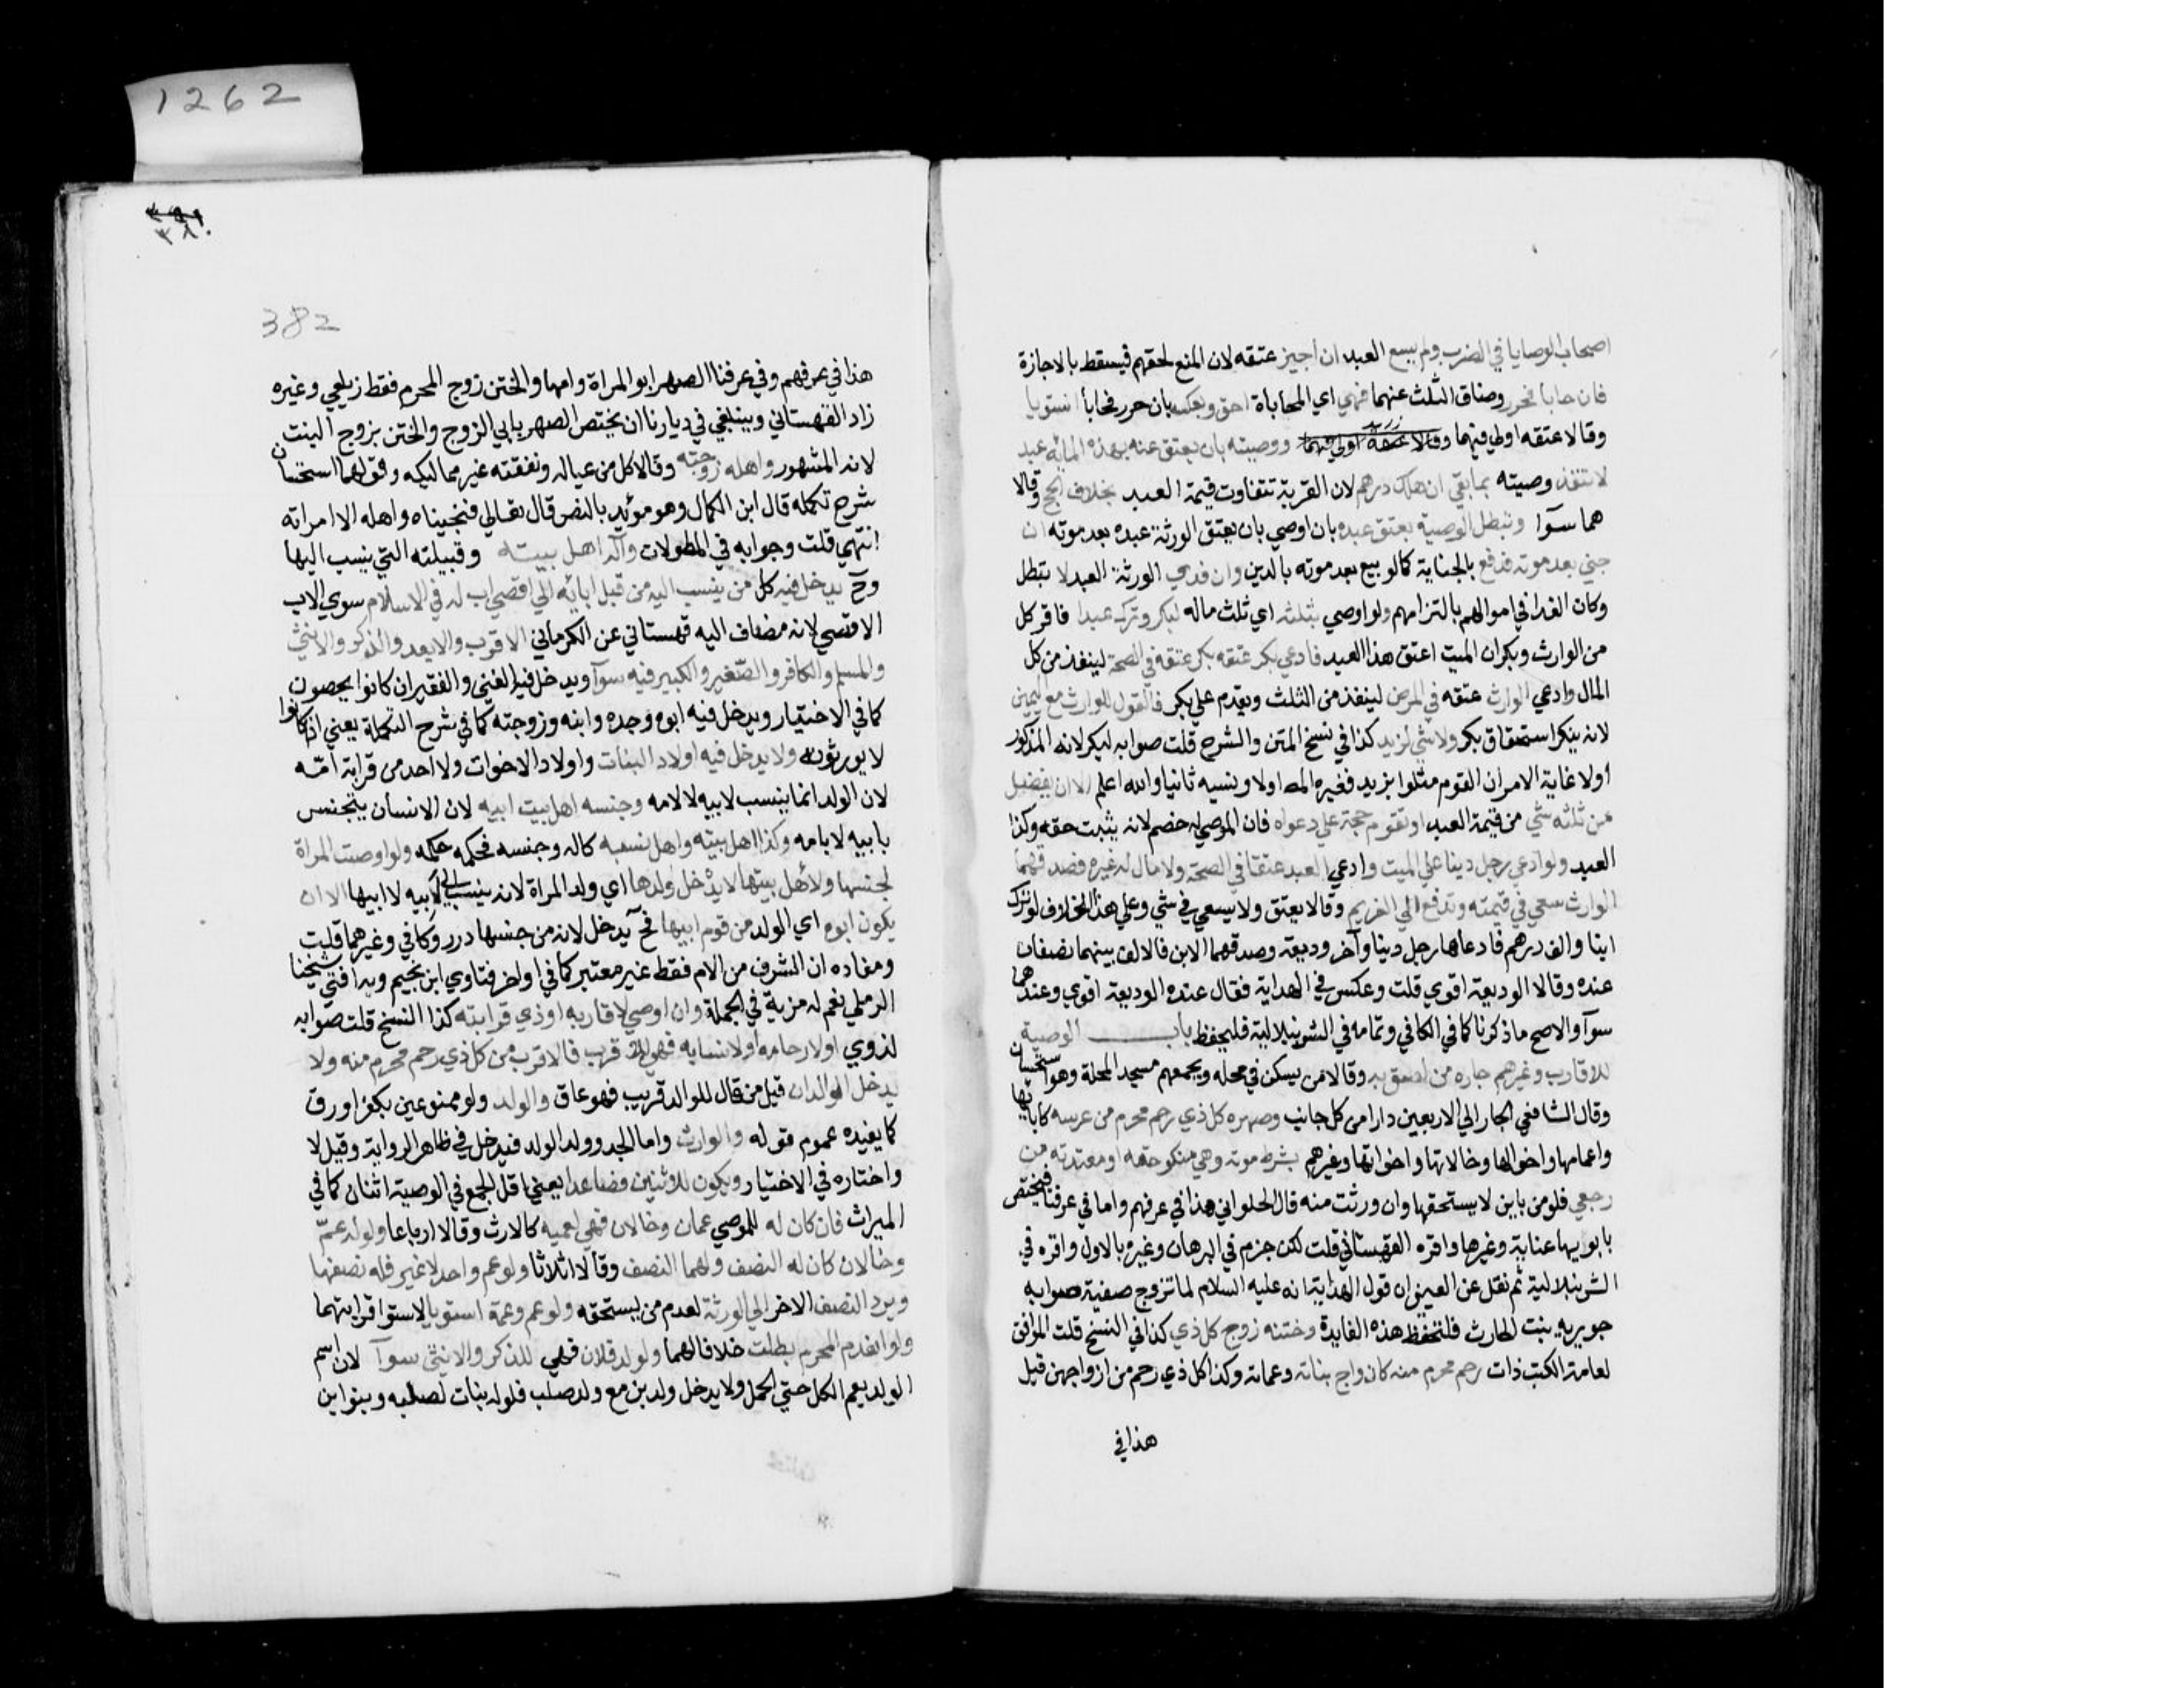 اصحاب الوصايا في الضرب ولم يسع العبد ان اجيز عتقه لان المنع لحقهم فيسقط بالاجازة
فان حابا فحرر وضاق الثلث عنهما فهي اي المحاباة احق وبعكسه بان حرر فحابا استويا
وقالا عتقه اولي فيهما وقالا عتقه اولي فيهما ووصيته بان يعتق عنه بهذه المائة عبد
لا تنفذ وصيته بما بقي ان هلك درهم لان القربة تتفاوت قيمة العبد بخلاف الحج وقالا
هما سوآ وتبطل الوصية بعتق عبده بان اوصي بان يعتق الورثة عبده بعد موته ان
جني بعد موته فدفع بالجناية كما لو بيع بعد موته بالدين وان فدي الورثة العبد لا تبطل
وكان الفدا في اموالهم بالتزامهم ولو اوصي بثلثه اي ثلث ماله لبكر وترك عبدا فاقر كل
من الوارث وبكر ان الميت اعتق هذا العبد فادعي بكر عتقه بكر عتقه في الصحة لينفذ من كل
المال وادعي الوارث عتقه في المرض لينفذ من الثلث ويقدم علي بكر فالقول للوارث مع اليمين
لانه ينكر استحقاق بكر ولا شي لزيد كذا في نسخ المتن والشرح قلت صوابه لبكر لانه المذكور
اولا غاية الامر ان القوم مثلوا بزيد فغيره المص اولا ونسيه ثانيا والله اعلم الا ان يفضل
من ثلثه شي من قيمة العبد او تقوم حجة علي دعواه فان الموصي له خصم لانه يثبت حقه وكذا
العبد ولو ادعي رجل دينا علي الميت وادعي العبد عتقا في الصحة ولا مال له غيره فصدقهما
الوارث سعي في قيمته وتدفع الي الغريم وقالا يعتق ولا يسعي في شي وعلي هذا الخلاف لو ترك
ابنا والف درهم فادعاها رجل دينا وآخر وديعة وصدقهما الابن فالالف بينهما نصفان
عنده وقالا الوديعة اقوي قلت وعكس في الهداية فقال عنده الوديعة اقوي وعندهما
سوآ والاصح ما ذكرنا كما في الكافي وتمامه في الشرنبلالية فليحفظ باب الوصية
للاقارب وغيرهم جاره من لصق به وقالا من يسكن في محله ويجمعهم مسجد المحلة وهو استحسان
وقال الشافعي الجار الي الاربعين دارا من كل جانب وصهره كل ذي رحم محرم من عرسه كابائها
واعمامها واخوالها وخالاتها واخواتها وغيرهم بشرط موته وهي منكوحته او معتدته من
رجعي فلو من باين لا يستحقها وان ورثت منه قال الحلواني هذا في عرفهم واما في عرفنا فيختص
بابويها عناية وغيرها واقره القهستاني قلت لكن جزم في البرهان وغيره بالاول واقره في
الشرنبلالية ثم نقل عن العيني ان قول الهداية انه عليه السلام لما تزوج صفية صوابه
جويرية بنت الحارث فلتحفظ هذه الفايدة وختنه زوج كل ذي كذا في النسخ قلت الموافق
لعامة الكتب ذات رحم محرم منه كازواج بناته وعماته وكذا كل ذي رحم من ازواجهن قيل
هذا في
1262
٣٨٠
382
هذا في عرفهم وفي عرفنا الصهر ابو المراة وامها والختن زوج المحرم فقط زيلعي وغيره
زاد القهستاني وينبغي في ديارنا ان يختص الصهر بابي الزوج والختن بزوج البنت
لانه المشهور واهله زوجته وقالا كل من عياله ونفقته غير مماليكه وقولهما استحسان
شرح تكمله قال ابن الكمال وهو مؤيد بالنص قال تعالي فنجيناه واهله الا امراته
انتهي قلت وجوابه في المطولات وآله اهل بيته وقبيلته التي ينسب اليها
وح يدخل فيه كل من ينسب اليه من قبل ابائه الي اقصي اب له في الاسلام سوي الاب
الاقصي لانه مضاف اليه قهستاني عن الكرماني الاقرب والابعد والذكر والانثي
والمسلم والكافر والصغير والكبير فيه سوآ ويدخل فيه الغني والفقير ان كانوا يحصون
كما في الاختيار ويدخل فيه ابوه وجده وابنه وزوجته كما في شرح التكملة يعني اذا كانوا
لا يورثون ولا يدخل فيه اولاد البنات واولاد الاخوات ولا احد من قرابة امه
لان الولد انما ينسب لابيه لا لامه وجنسه اهل بيت ابيه لان الانسان يتجنس
بابيه لا بامه وكذا اهل بيته واهل نسبه كاله وجنسه فحكمه حكمه ولو اوصت المراة
لجنسها ولاهل بيتها لا يدخل ولدها اي ولد المراة لانه ينسب الي ابيه لا ابيها الا ان
يكون ابوه اي الولد من قوم ابيها فح يدخل لانه من جنسها درر وكافي وغيرهما قلت
ومفاده ان الشرف من الام فقط غير معتبر كما في اواخر فتاوي ابن نجيم وبه افتي شيخنا
الرملي نعم له مزية في الجملة وان اوصي لاقاربه او ذي قرابته كذا النسخ قلت صوابه
لذوي او لارحامه او لانسابه فهي قرب فالاقرب من كل ذي رحم محرم منه ولا
يدخل الوالدان قيل من قال للوالد قريب فهو عاق والولد ولو ممنوعين بكفر او رق
كما يفيده عموم قوله والوارث واما الجد وولد الولد فيدخل في ظاهر الرواية وقيل لا
واختاره في الاختيار ويكون للاثنين فصاعدا يعني اقل الجمع في الوصية اثنان كما في
الميراث فان كان له للموصي عمان وخالان فهي لعميه كالارث وقالا ارباعا ولو له عم
وخالان كان له النصف ولهما النصف وقالا اثلاثا ولو عم واحد لا غير فله نصفها
ويرد النصف الاخر الي الورثة لعدم من يستحقه ولو عم وعمة استويا لاستوا قرابتهما
ولو انعدم المحرم بطلت خلافا لهما ولولد فلان فهي للذكر والانثي سوآ لان اسم
الولد يعم الكل حتي الحمل ولا يدخل ولد بن مع ولد صلب فلو له بنات لصلبه وبنو ابن